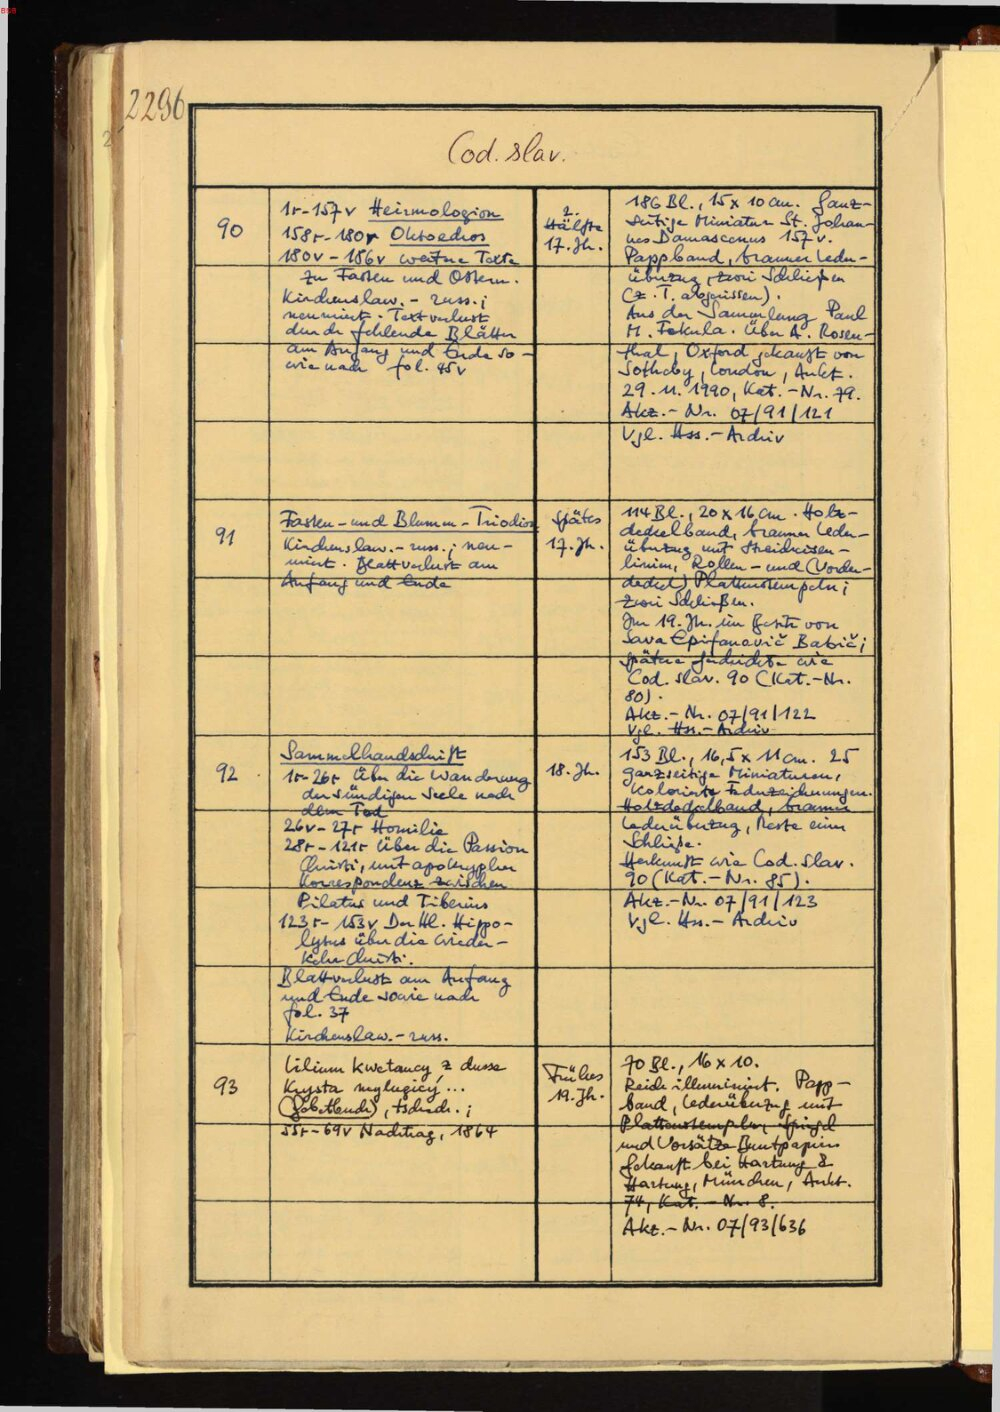 BSB
2296
Cod. slav.
90
1r-157v Heirmologion
158r-180r Oktoechos
180v-186v weitere Texte
zu Fasten und Ostern.
Kirchenslaw.-russ.;
neumiert. Textverlust
durch fehlende Blätter
am Anfang und Ende so-
wie nach fol. 85v
2.
Hälfte
17. Jh.
186 Bl., 15 x 10 cm. Ganz-
seitige Miniatur St. Johan-
nes Damascenus 157v.
Pappband, brauner Leder-
überzug, zwei Schließen
(z. T. abgerissen).
Aus der Sammlung Paul
M. Fekula. Über A. Rosen-
thal, Oxford gekauft von
Sotheby, London, Aukt.
29.11.1990, Kat.-Nr. 79.
Akz.-Nr. 07/91/121
Vgl. Hss.-Archiv
91
Fasten- und Blumen-Triodion
Kirchenslaw.-russ.; neu-
miert. Blattverlust am
Anfang und Ende
Spätes
17. Jh.
114 Bl., 20 x 16 cm. Holz-
deckelband, brauner Leder-
überzug mit Streicheisen-
linien, Rollen- und (Vorder-
deckel) Plattenstempeln;
zwei Schließen.
Im 19. Jh. im Besitz von
Sava Epifanovič Babič;
spätere Geschichte wie
Cod. slav. 90 (Kat.-Nr.
80).
Akz.-Nr. 07/91/122
Vgl. Hss.-Archiv
92
Sammelhandschrift
1r-26r Über die Wanderung
der sündigen Seele nach
dem Tod
26v-27r Homilie
28r-121r Über die Passion
Christi, mit apokrypher
Korrespondenz zwischen
Pilatus und Tiberius
123r-153v Der Hl. Hippo-
lytus über die Wieder-
kehr Christi.
Blattverlust am Anfang
und Ende sowie nach
fol. 37
Kirchenslaw.-russ.
18. Jh.
153 Bl., 16,5 x 11 cm. 25
ganzseitige Miniaturen,
kolorierte Federzeichnungen.
Holzdeckelband, brauner
Lederüberzug, Reste einer
Schließe.
Herkunft wie Cod. slav.
90 (Kat.-Nr. 85).
Akz.-Nr. 07/91/123
Vgl. Hss.-Archiv
93
Lilium kwetaucy z dusse
Krysta
(Gebetbuch), tschech.;
55r-69v Nachtrag, 1864
Frühes
19. Jh.
70 Bl., 16 x 10.
Reich illuminiert. Papp-
band, Lederüberzug mit
Plattenstempeln, Spiegel
und Vorsätze Buntpapier
Gekauft bei Hartung &
Hartung, München, Aukt.
74, Kat.-Nr. 8.
Akz.-Nr. 07/93/636